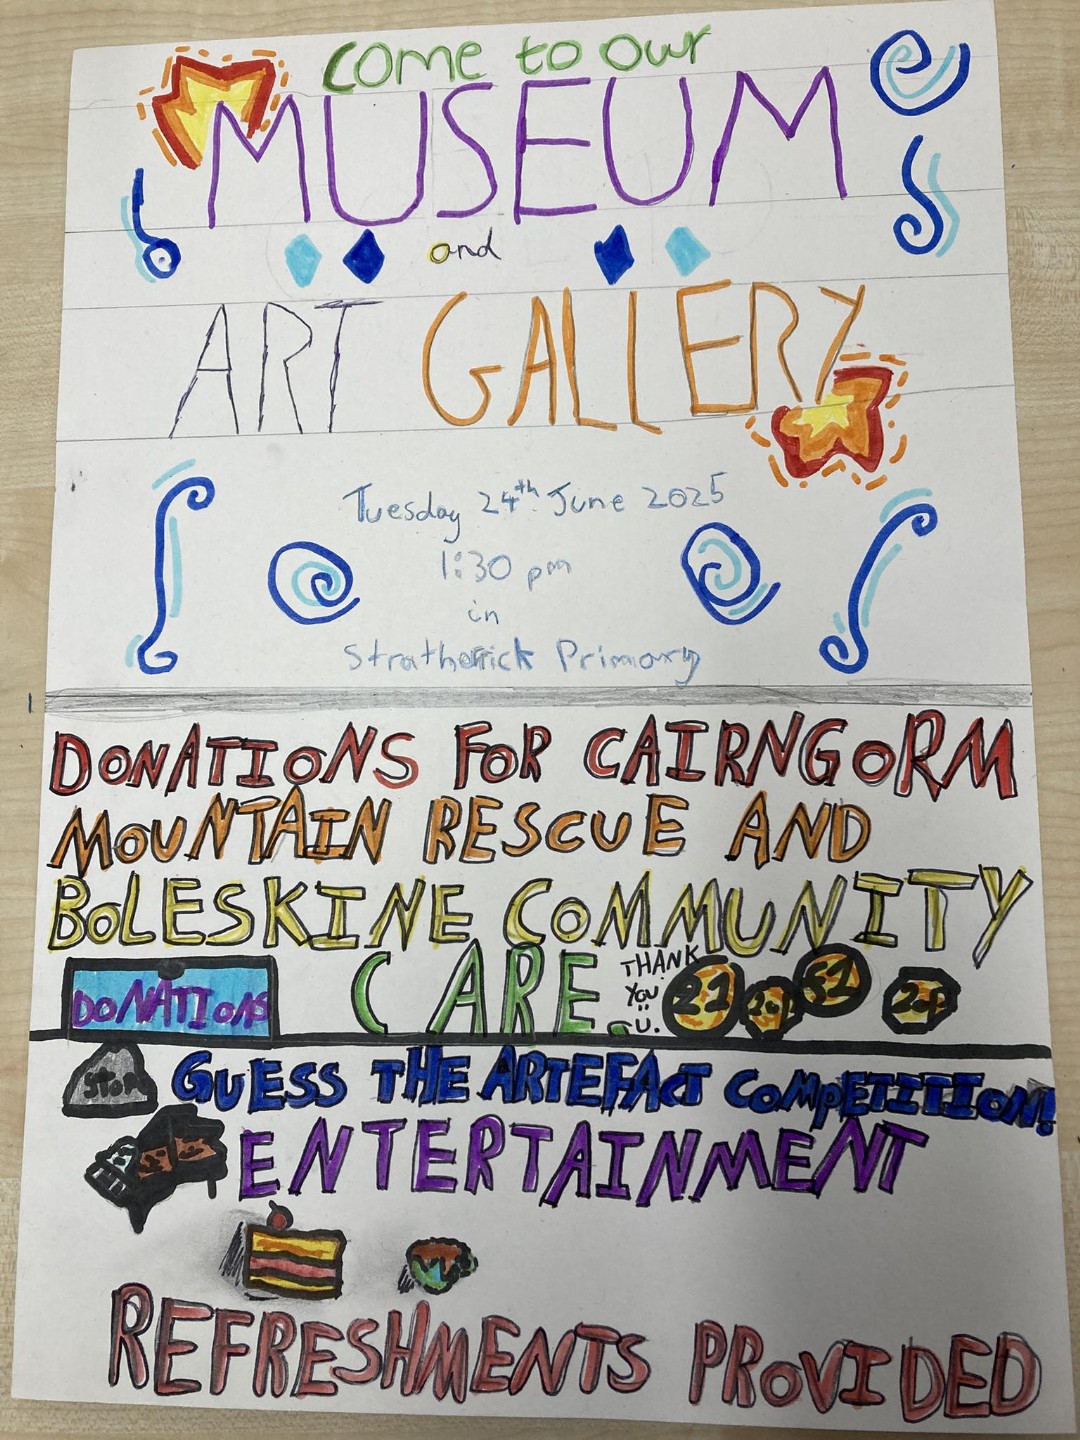 Come to our
MUSEUM
and
ART GALLERY
Tuesday 24th June 2025
1:30 pm
in
Stratherrick Primary
DONATIONS FOR CAIRNGORM
MOUNTAIN RESCUE AND
BOLESKINE COMMUNITY
CARE.
THANK
YOU
DONATIONS
£1
20p
£1
20p
STOP
GUESS THE ARTEFACT COMPETITION!
ENTERTAINMENT
REFRESHMENTS PROVIDED